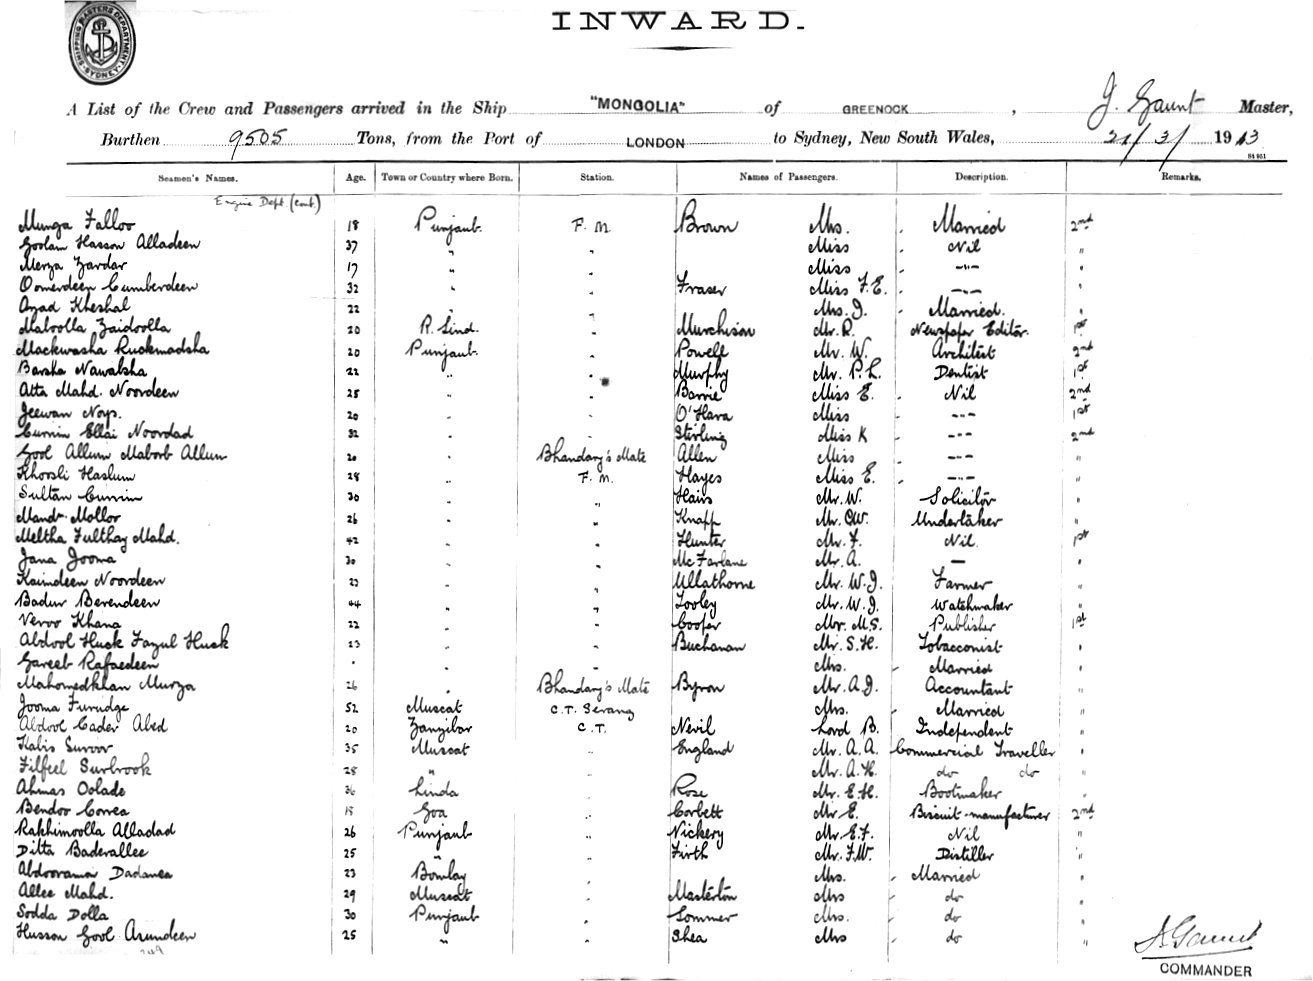 INWARD.
SHIPPING MASTERS DEPARTMENT. SYDNEY
A List of the Crew and Passengers arrived in the Ship "MONGOLIA" of GREENOCK, J. Gaunt Master,
Burthen 9505 Tons, from the Port of LONDON to Sydney, New South Wales, 21/3/ 1913
St 951
Seamen's Names. Age. Town or Country where Born. Station. Names of Passengers. Description. Remarks.
Engine Dept. (cont)
Munga Falloo 18 Punjaub F. M. Brown Mrs. Married 2nd
Goolam Hasson Alladeen 37 " " Miss Nil "
Merza Zardar 17 " " Miss -"- "
Oomerdeen Cumberdeen 32 " " Fraser Miss F. E. -"- "
Azad Kheshal 22 " " Mrs. J. Married. "
Maloolla Zaidoolla 20 R. Sind. " Murchison Mr. R. Newspaper Editor. 1st
Mackwasha Ruckmadsha 20 Punjaub " Powell Mr. W. Architect 2nd
Barsha Nawabsha 22 " " Murphy Mr. P. L. Dentist 1st
Atta Mahd. Noordeen 25 " " Barrie Miss E. Nil 2nd
Jeewan Noys. 20 " " O'Hara Miss -"- 1st
Currim Ellai Noordad 32 " " Stirling Miss K -"- 2nd
Gool Allum Maborb Allum 20 " Bhandary's Mate Allen Miss -"- "
Khorsli Haslum 28 " F. M. Hayes Miss E. -"- "
Sultan Currim 30 " " Hairs Mr. W. Solicitor "
Mandr Mollor 26 " " Knapp Mr. O.W. Undertaker "
Meltha Fulthay Mahd. 42 " " Hunter Mr. F. Nil. 1st
Jana Jooma 30 " " McFarlane Mr. A. — "
Kaimdeen Noordeen 23 " " Ullathorne Mr. W. J. Farmer "
Badur Berendeen 44 " " Tooley Mr. W. J. Watchmaker "
Neroo Khana 22 " " Cooper Mr. M. S. Publisher 1st
Abdool Huck Fazul Huck 23 " " Buchanan Mr. S. H. Tobacconist "
Gareeb Rafaedeen " " " Mrs. Married "
Mahomedkhan Murza 26 " Bhandary's Mate Byron Mr. A. J. Accountant "
Jooma Furudge 52 Muscat C. T. Serang Mrs. Married "
Abdool Cader Abed 20 Zanzibar C. T. Nevil Lord B. Independent "
Habis Suroor 35 Muscat " England Mr. A. A. Commercial Traveller "
Filfeel Surbrook 28 " " Mr. A. H. do do "
Ahmas Oolade 36 Linda " Rose Mr. E. H. Bootmaker "
Bendoo Correa 18 Goa " Corbett Mr E. Biscuit-manufacturer 2nd
Rakhimoolla Alladad 26 Punjaub " Vickery Mr. E. F. Nil "
Ditta Baderallee 25 " " Firth Mr. F. W. Distiller "
Abdoorama Dadamea 23 Bombay " Mrs. Married "
Allee Mahd. 29 Muscat " Masterton Mrs do "
Sodda Dolla 30 Punjaub " Sommer Mrs. do "
Husson Gool Arundeen 25 " " Shea Mrs do "
J. Gaunt
COMMANDER